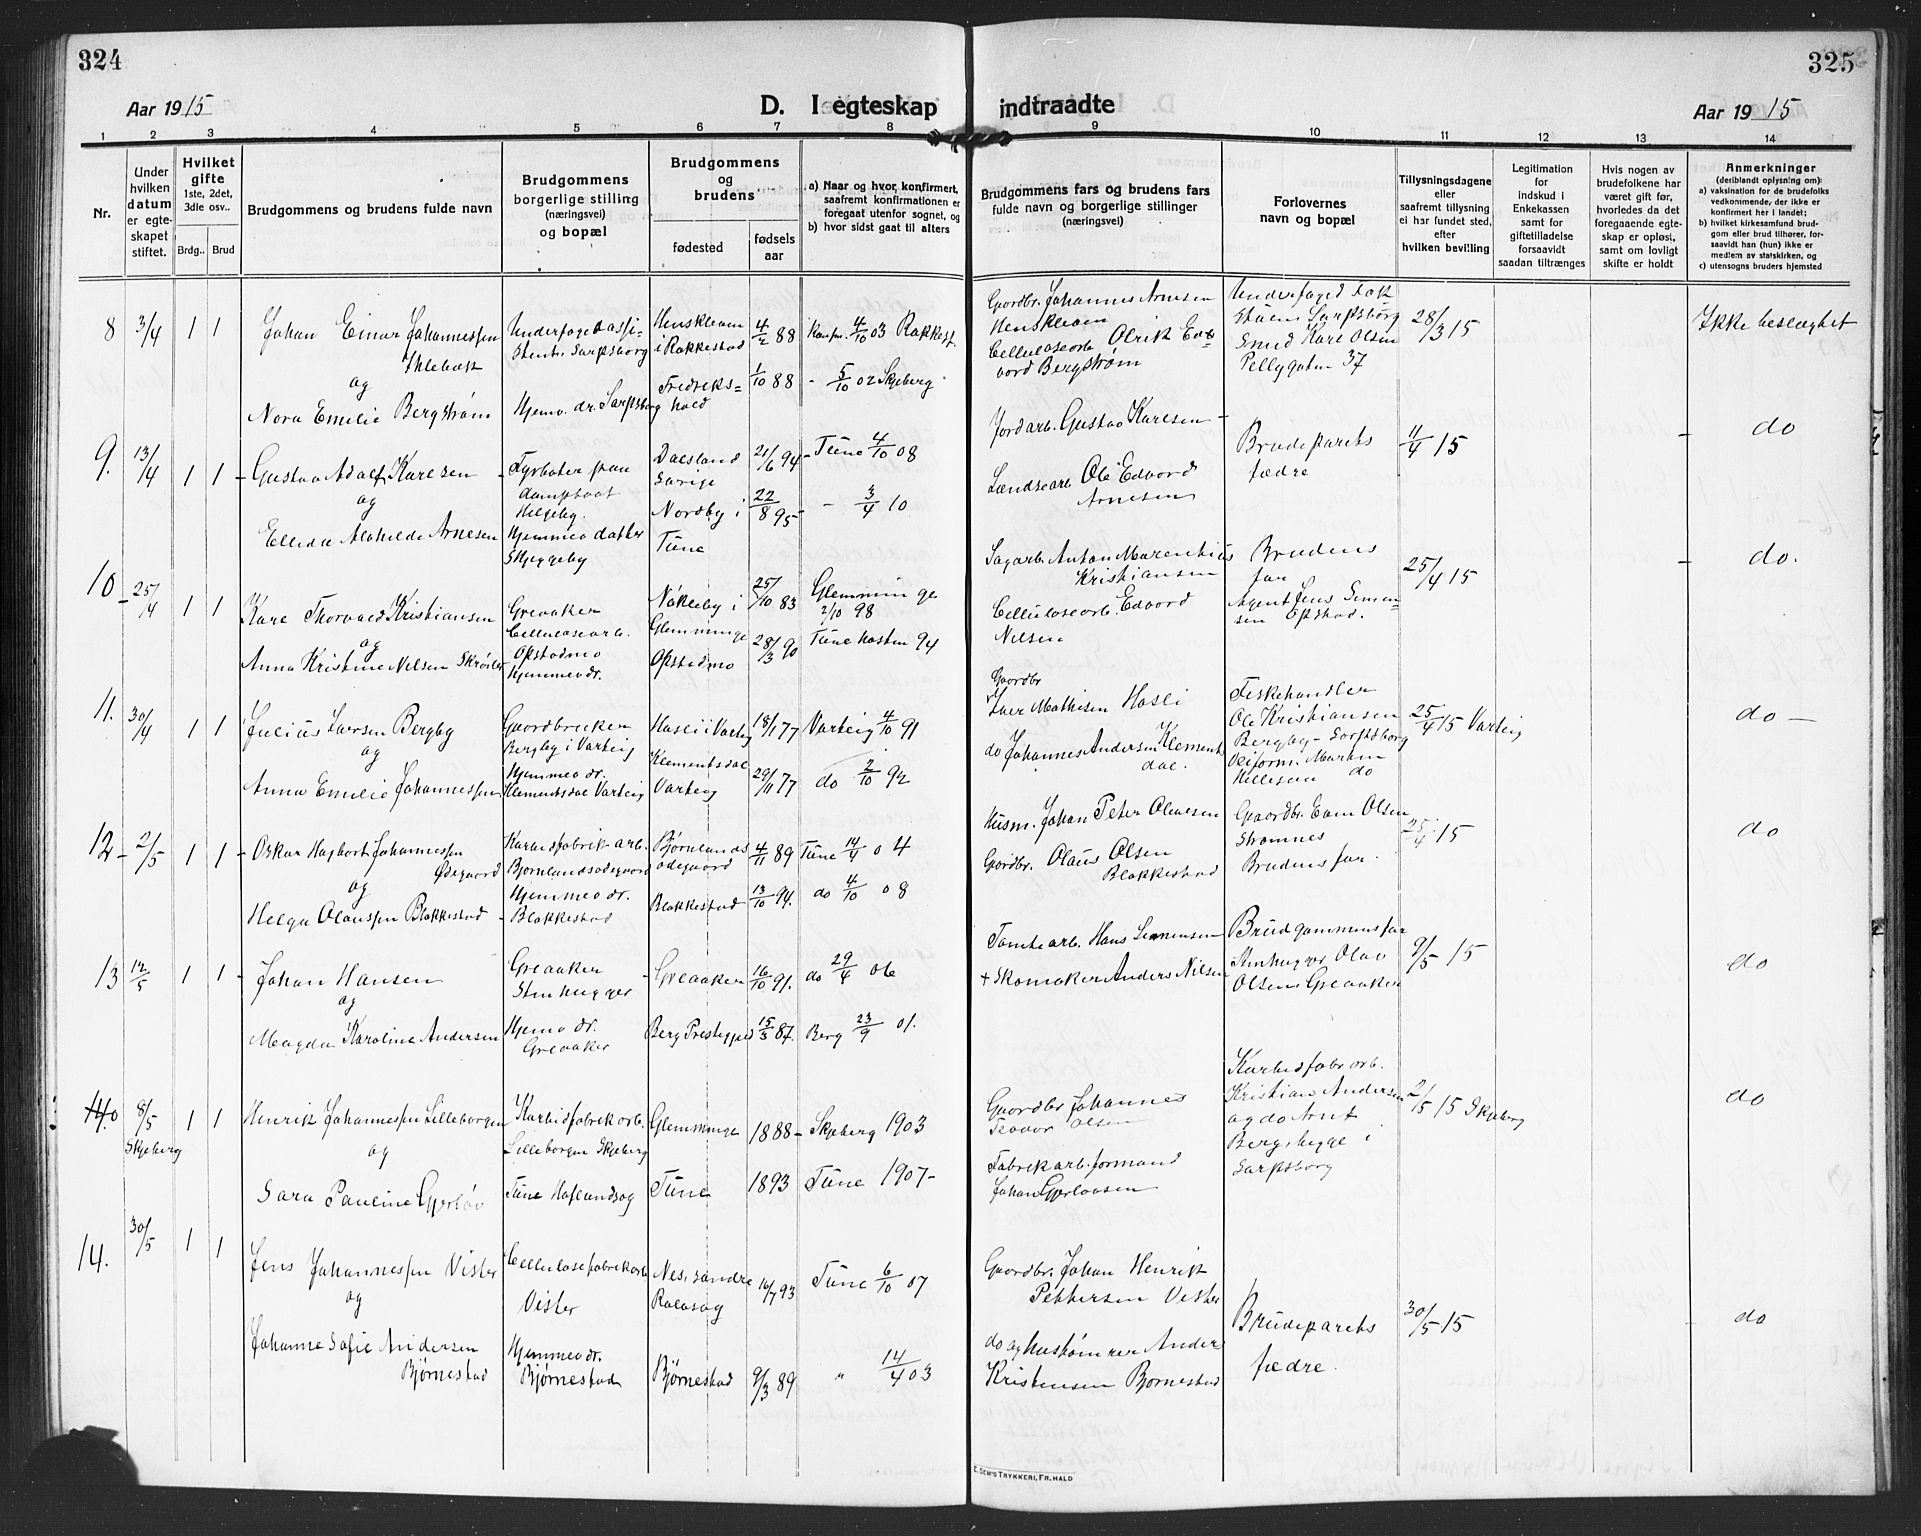 324
325
Aar 1915
D. I egteskap indtraadte
Aar 1915
1 2 3 4 5 6 7 8 9 10 11 12 13 14
Nr.
Under hvilken datum er egteskapet stiftet.
Hvilket gifte 1ste, 2det, 3dle osv..
Brdg.. Brud
Brudgommens og brudens fulde navn
Brudgommens borgerlige stilling (næringsvei) og bopæl
Brudgommens og brudens
fødested
fødsels aar
a) Naar og hvor konfirmert, saafremt konfirmationen er foregaat utenfor sognet, og
b) hvor sidst gaat til alters
Brudgommens fars og brudens fars fulde navn og borgerlige stillinger (næringsvei)
Forlovernes navn og bopæl
Tillysningsdagene eller saafremt tillysning ei har fundet sted, efter hvilken bevilling
Legitimation for indskud i Enkekassen samt for giftetilladelse forsaavidt saadan tiltrænges
Hvis nogen av brudefolkene har været gift før, hvorledes da det foregaaende egteskap er opløsi, samt om lovligt skifte er holdt
Anmerkninger (deriblandt oplysning om):
a) vaksination for de brudefolks vedkommende, der ikke er konfirmert her i landet;
b) hvilket kirkesamfund brudgom eller brud tilhører, forsaavidt han (hun) ikke er medlem av statskirken, og
c) utensogns bruders hjemsted
8 3/4 1 1
Johan Einar Johannessen
og
Nora Emilie Bergstrøm
Sarpsborg
Hjemv. dr. Sarpsborg
i Rakkestad
Fredrikshald
4/2 88
1/10 88
Konfm. 4/10 03 Rakkest.
- 5/10 02 Skjeberg
Gaardbr. Johannes Arnesen
Cellulosearb Olrik Edvard Bergstrøm
Sarpsborg
Smed Karl Olsen
Pellygaten 37
28/3 15
Ikke beslægtet
9. 13/4 1 1
Gustav Adolf Karlsen
og
Ellida Alahilde Arnesen
Fyrbøter paa
Helgeby.
Hjemmev datter
Skjeggeby
Dalsland
Sverige
Nordby i
Tune
21/6 94
22/8 95
Tune 4/10 08
- 3/4 10
Jordarb. Gustav Karlsen
Ole Edvard
Arnesen
Brudeparets
fædre
11/4 15
do
10 25/4 1 1
Kare Thorvald Kristiansen
og
Anna Kristine Nilsen
Greaaker
Cellulosearb.
Opstadmo
Hjemmev dr.
Nøkleby i
Glemminge
Opstadmo
25/10 83
28/3 90
Glemminge
2/10 98
Tune høsten 94
Sagarb. Anton Marentius
Kristiansen
Cellulosearb. Edvard
Nilsen
Brudens
far
Agent Jens Simensen Opstad.
25/4 15
do.
11. 30/4 1 1
Julius Larsen Bergby
og
Anna Emilie Johannessen
Gaardbruker
Bergby i Varteig
Hjemmev dr.
Klementsdal Varteig
Hasli i Varteig
Klementsdal
Varteig
18/1 77
29/11 77
Varteig 4/10 91
do 2/10 92
Gaardbr
Mathisen Hasli
do Johannes Andersen Klementsdal.
Fiskehandler
Ole Kristiansen
Bergby - Sarpsborg
do
25/4 15 Varteig
do -
12 2/5 1 1
Oskar Hagbart Johannessen
Ødegaard
og
Helga Olaussen Blakkestad
Karbidfabrik arb.
Bjørnlandsødegaard
Hjemmev dr.
Blakkestad
Bjørnlands
ødegaard
Blakkestad
4/11 89
13/10 94.
Tune 14/4 04
do 4/10 08
Husm. Johan Peter
Gaardbr. Olaus Olsen
Blakkestad
Gaardbr. Olsen
Brudens far.
25/4 15
do
13 12/5 1 1
Johan Hansen
og
Magda Karoline Andersen
Greaaker
Stenhugger
Hjemv dr.
Greaaker
Greaaker
Berg Prestegjeld
16/10 91.
15/3 87.
do 29/4 06
Berg 23/9 01.
Tomtearb. Hans
+ Skomaker Anders Nilsen
Brudgommens far
Stenhugger Olav
Olsen Greaaker
9/5 15
do
14.0 8/5 1 1
Skjeberg
Henrik Johannessen Lilleborgen
og
Sara Pauline Gjerløv
Karbidfabrikarb.
Lilleborgen Skjeberg
Tune Haflundsøg
Glemminge
Tune
1888
1893
Skjeberg 1903
Tune 1907-
Gaardbr Johannes
Olsen
Fabrikarb. formand
Johan Gjerløvsen
Karbidfabr arb.
Kristian Andersen
og do Arnt
Bergsbygge i
Sarpsborg
2/5 15 Skjeberg
do
14. 30/5 1 1
Jens Johannessen Vister
og
Johanne Sofie Andersen
Bjørnestad
Cellulosefabrikarb
Vister
Hjemmev dr.
Bjørnestad
Nes, søndre
Bjørnestad
16/7 93
9/3 89
Tune 6/10 07
" 14/4 03
Gaardbr. Johan Henrik
Pettersen Vister
do og hustømrer Anders
Kristensen Bjørnestad
Brudeparets
fædre.
30/5 15
do
E. SEM'S TRYKKERI, FR.HALD